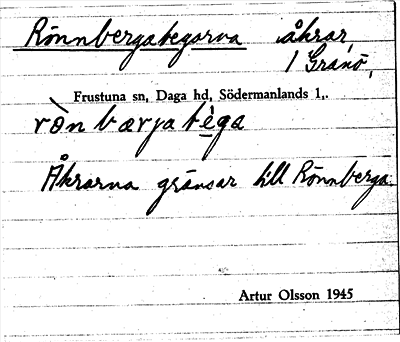 Rönnbergategarna åkrar,
1 Granö,
Frustuna sn, Daga hd, Södermanlands l,.
rǿn bærja tèga
Åkrarna gränsar till Rönnberga.
Artur Olsson 1945